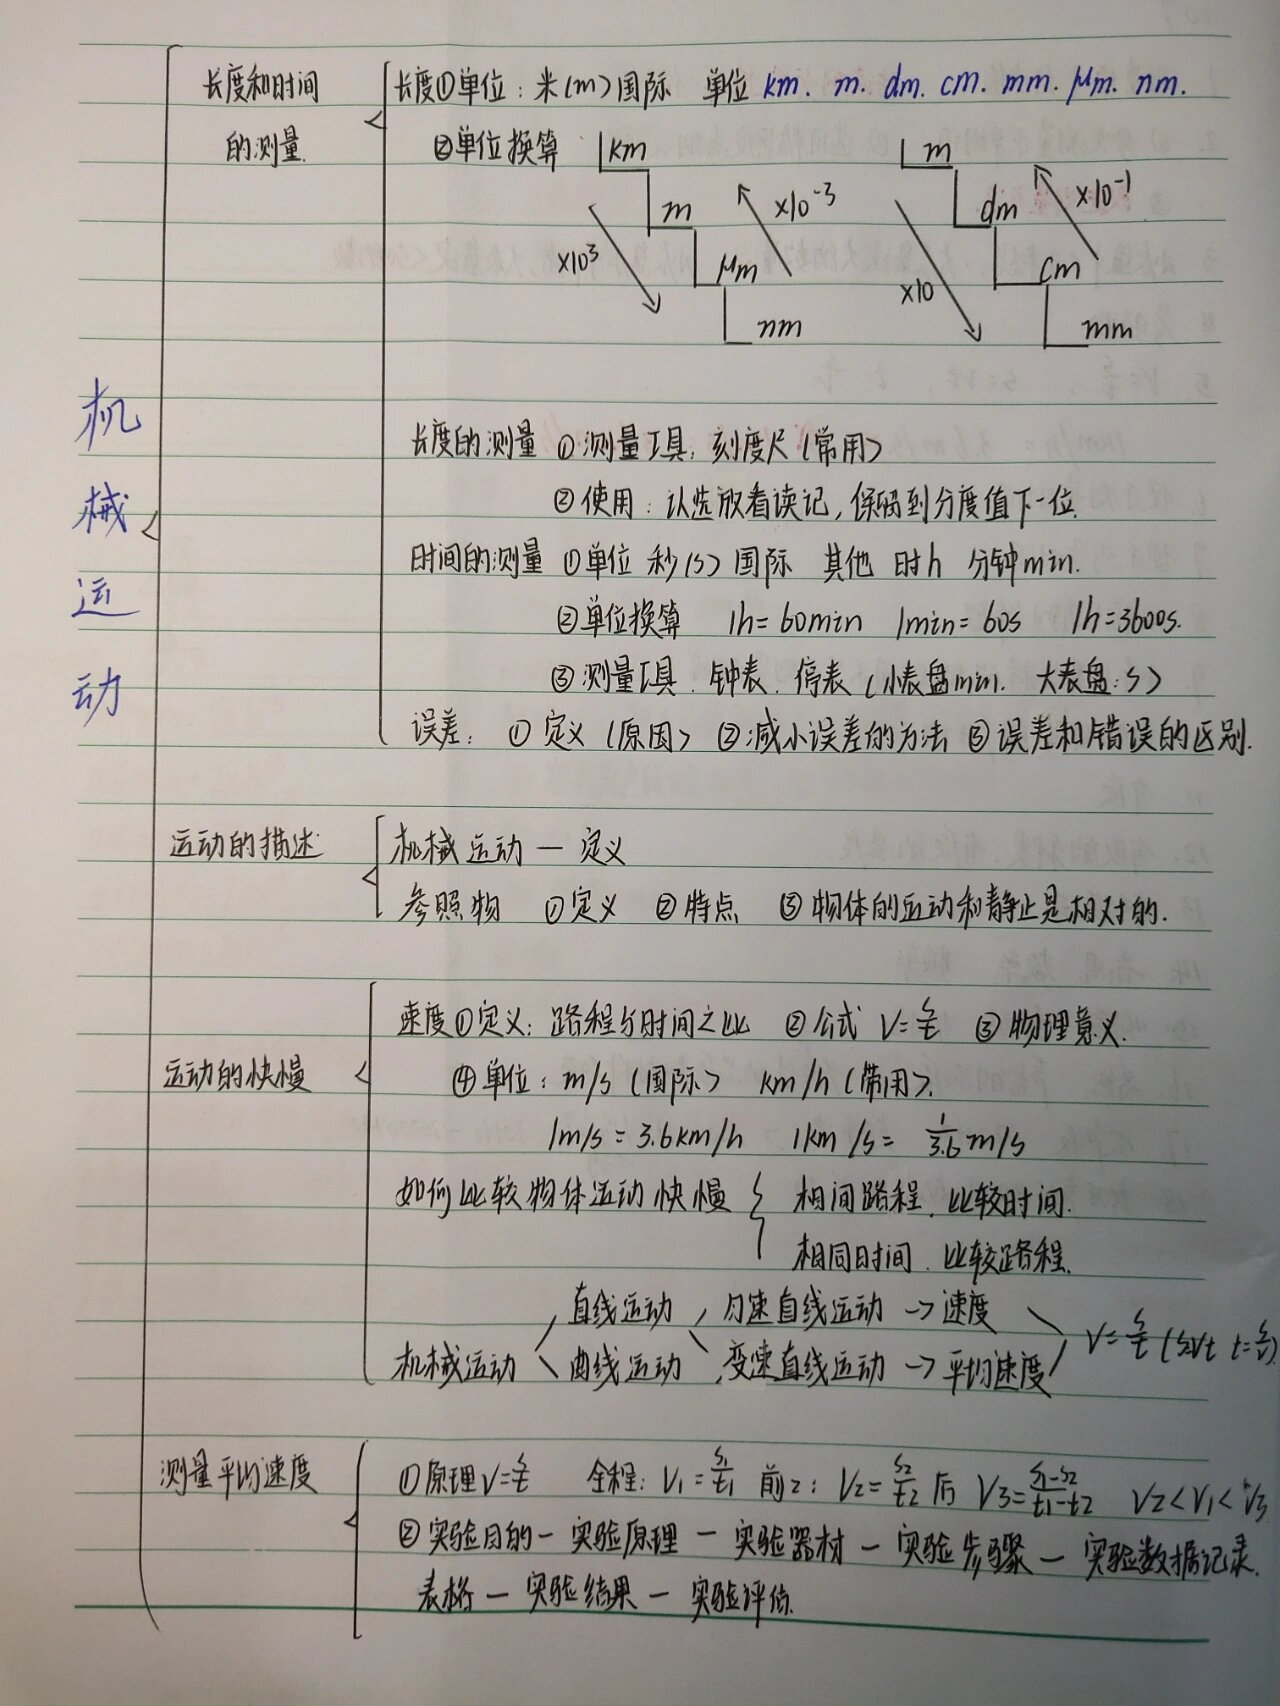 机械运动
长度和时间的测量
长度①单位：米(m)国际 单位 km. m. dm. cm. mm. μm. nm.
②单位换算 km m μm nm ×10³ ×10⁻³ m dm cm mm ×10 ×10⁻¹
长度的测量 ①测量工具：刻度尺(常用)
②使用：认选放看读记，保留到分度值下一位.
时间的测量 ①单位 秒(s)国际 其他 时h 分钟min.
②单位换算 1h=60min 1min=60s 1h=3600s.
③测量工具. 钟表. 停表(小表盘min. 大表盘:s)
误差：①定义(原因) ②减小误差的方法 ③误差和错误的区别.
运动的描述
机械运动—定义
参照物 ①定义 ②特点 ③物体的运动和静止是相对的.
运动的快慢
速度①定义：路程与时间之比 ②公式 V=s/t ③物理意义.
④单位：m/s(国际) km/h(常用).
1m/s=3.6km/h 1km/s=1/3.6 m/s
如何比较物体运动快慢 相同路程. 比较时间.
相同时间. 比较路程.
机械运动 直线运动 匀速直线运动→速度
曲线运动 变速直线运动→平均速度 V=s/t (s=vt t=s/v)
测量平均速度
①原理V=s/t 全程：V1=s1/t1 前2：V2=s2/t2 后 V3=s1-s2/t1-t2 V2<V1<V3
②实验目的—实验原理—实验器材—实验步骤—实验数据记录.
表格—实验结果—实验评估.